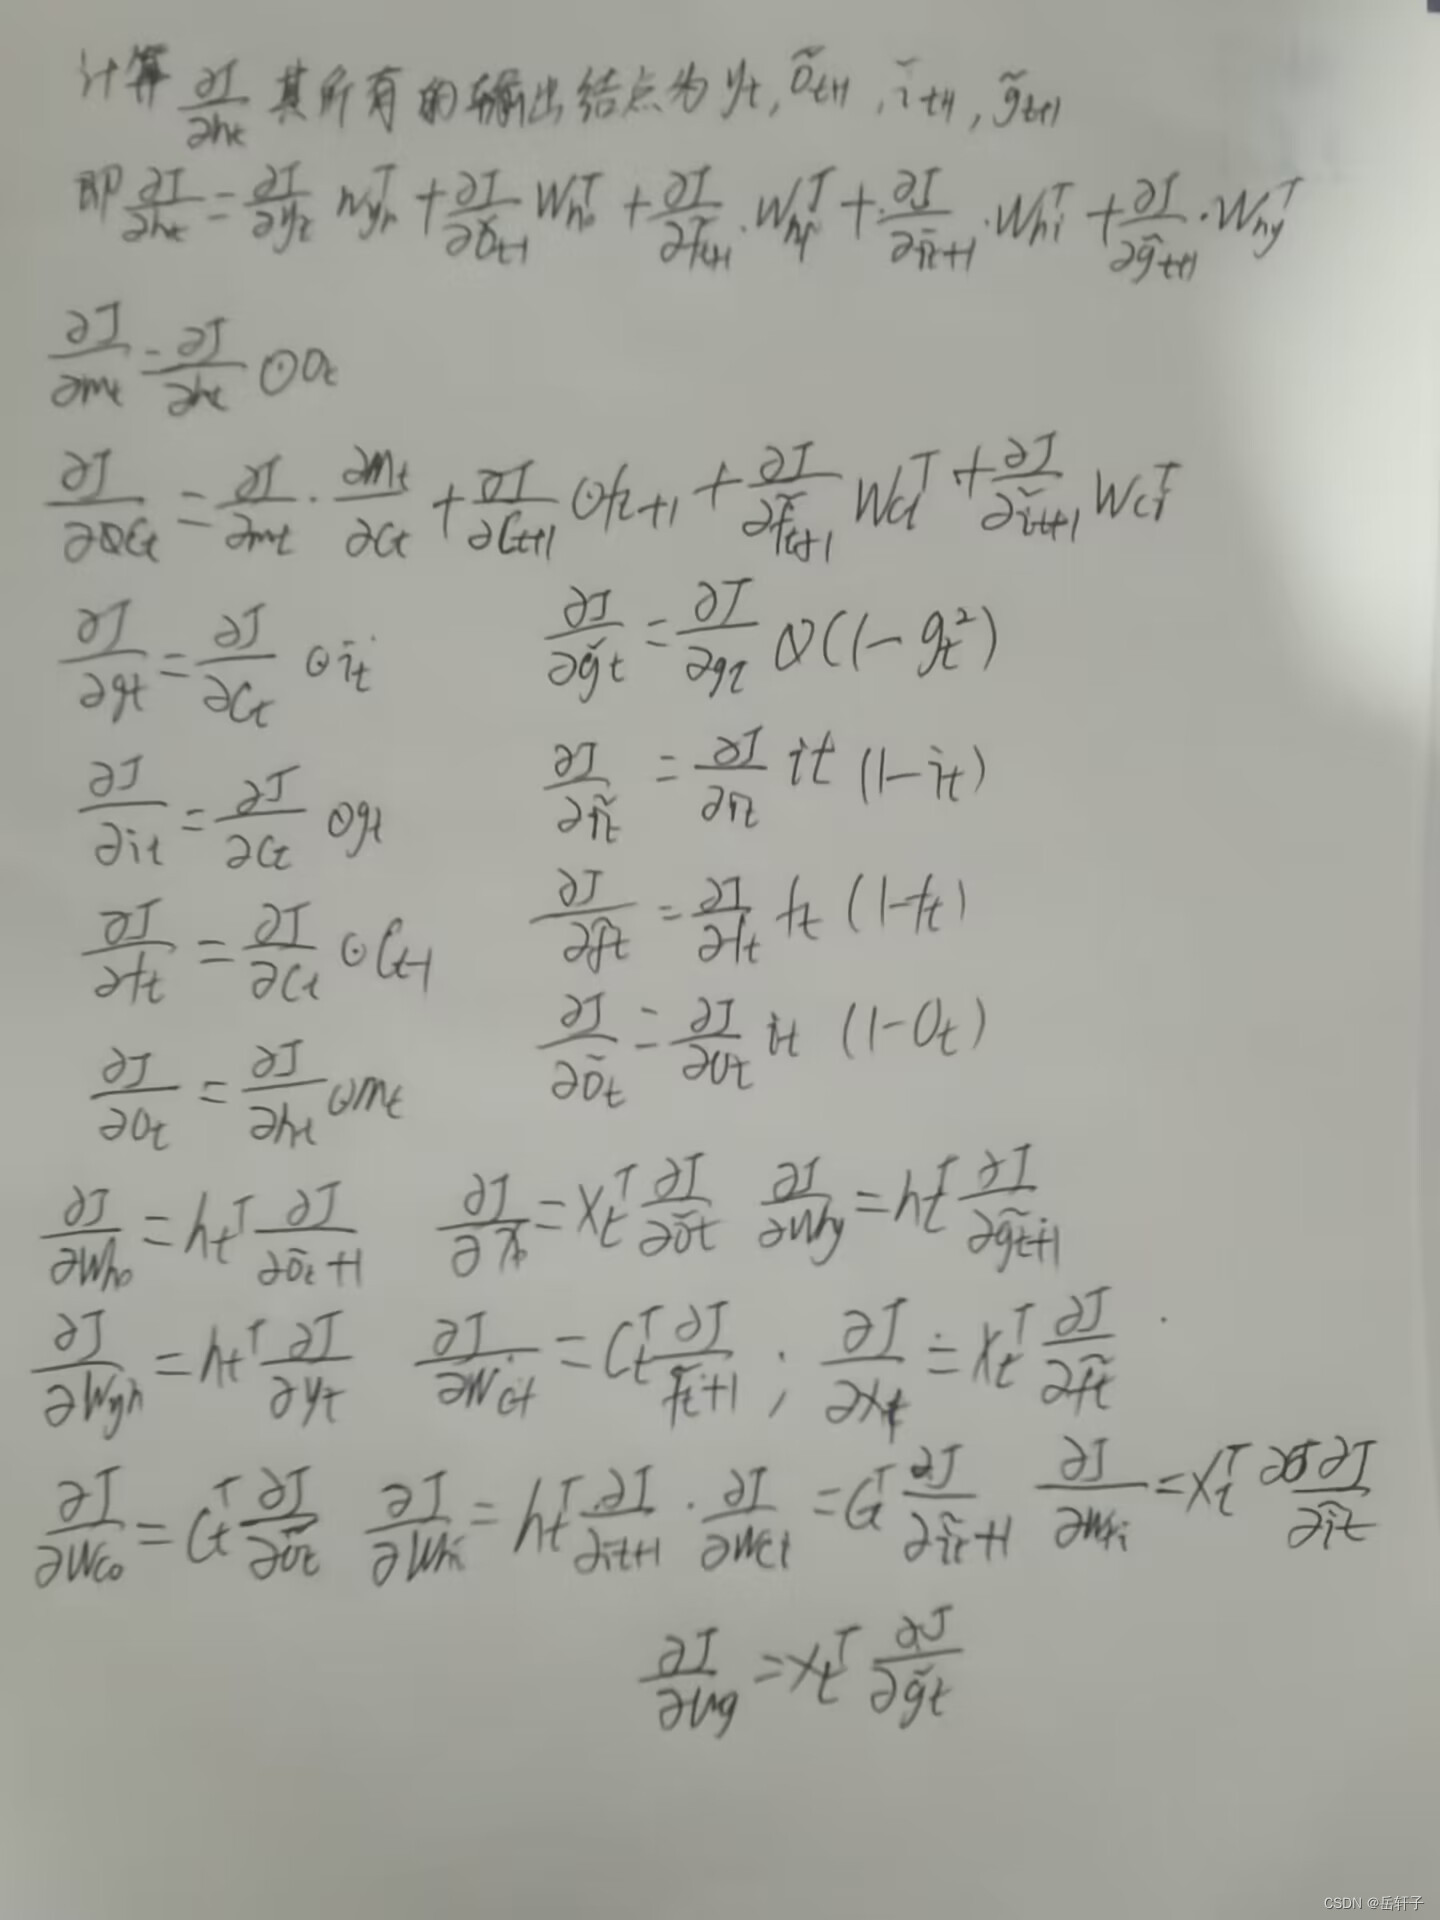 计算 ∂J/∂h_t 其所有的输出结点为 y_t, õ_{t+1}, ĩ_{t+1}, g̃_{t+1}
即 ∂J/∂h_t = ∂J/∂y_t W_{yh}^T + ∂J/∂õ_{t+1} W_{ho}^T + ∂J/∂f̃_{t+1} · W_{hf}^T + ∂J/∂ĩ_{t+1} · W_{hi}^T + ∂J/∂g̃_{t+1} · W_{hy}^T
∂J/∂m_t = ∂J/∂h_t ⊙ O_t
∂J/∂C_t = ∂J/∂m_t · ∂m_t/∂C_t + ∂J/∂C_{t+1} ⊙ f_{t+1} + ∂J/∂f̃_{t+1} W_{cf}^T + ∂J/∂ĩ_{t+1} W_{ci}^T
∂J/∂g_t = ∂J/∂C_t ⊙ i_t ∂J/∂g̃_t = ∂J/∂g_t ⊙ (1 - g_t^2)
∂J/∂i_t = ∂J/∂C_t ⊙ g_t ∂J/∂ĩ_t = ∂J/∂i_t i_t (1 - i_t)
∂J/∂f_t = ∂J/∂C_t ⊙ C_{t-1} ∂J/∂f̃_t = ∂J/∂f_t f_t (1 - f_t)
∂J/∂O_t = ∂J/∂h_t ⊙ m_t ∂J/∂õ_t = ∂J/∂O_t i_t (1 - O_t)
∂J/∂W_{ho} = h_t^T ∂J/∂õ_{t+1} = X_t^T ∂J/∂õ_t ∂J/∂W_{hy} = h_t^T ∂J/∂g̃_{t+1}
∂J/∂W_{yh} = h_t^T ∂J/∂y_t ∂J/∂W_{cf} = C_t^T ∂J/f̃_{t+1} ; ∂J/∂X_f = X_t^T ∂J/∂f̃_t
∂J/∂W_{co} = C_t^T ∂J/∂õ_t ∂J/∂W_{hi} = h_t^T ∂J/∂i_{t+1} · ∂J/∂W_{ci} = C_t^T ∂J/∂ĩ_{t+1} ∂J/∂W_{xi} = X_t^T ∂J/∂ĩ_t
∂J/∂W_g = X_t^T ∂J/∂g̃_t
CSDN @岳轩子